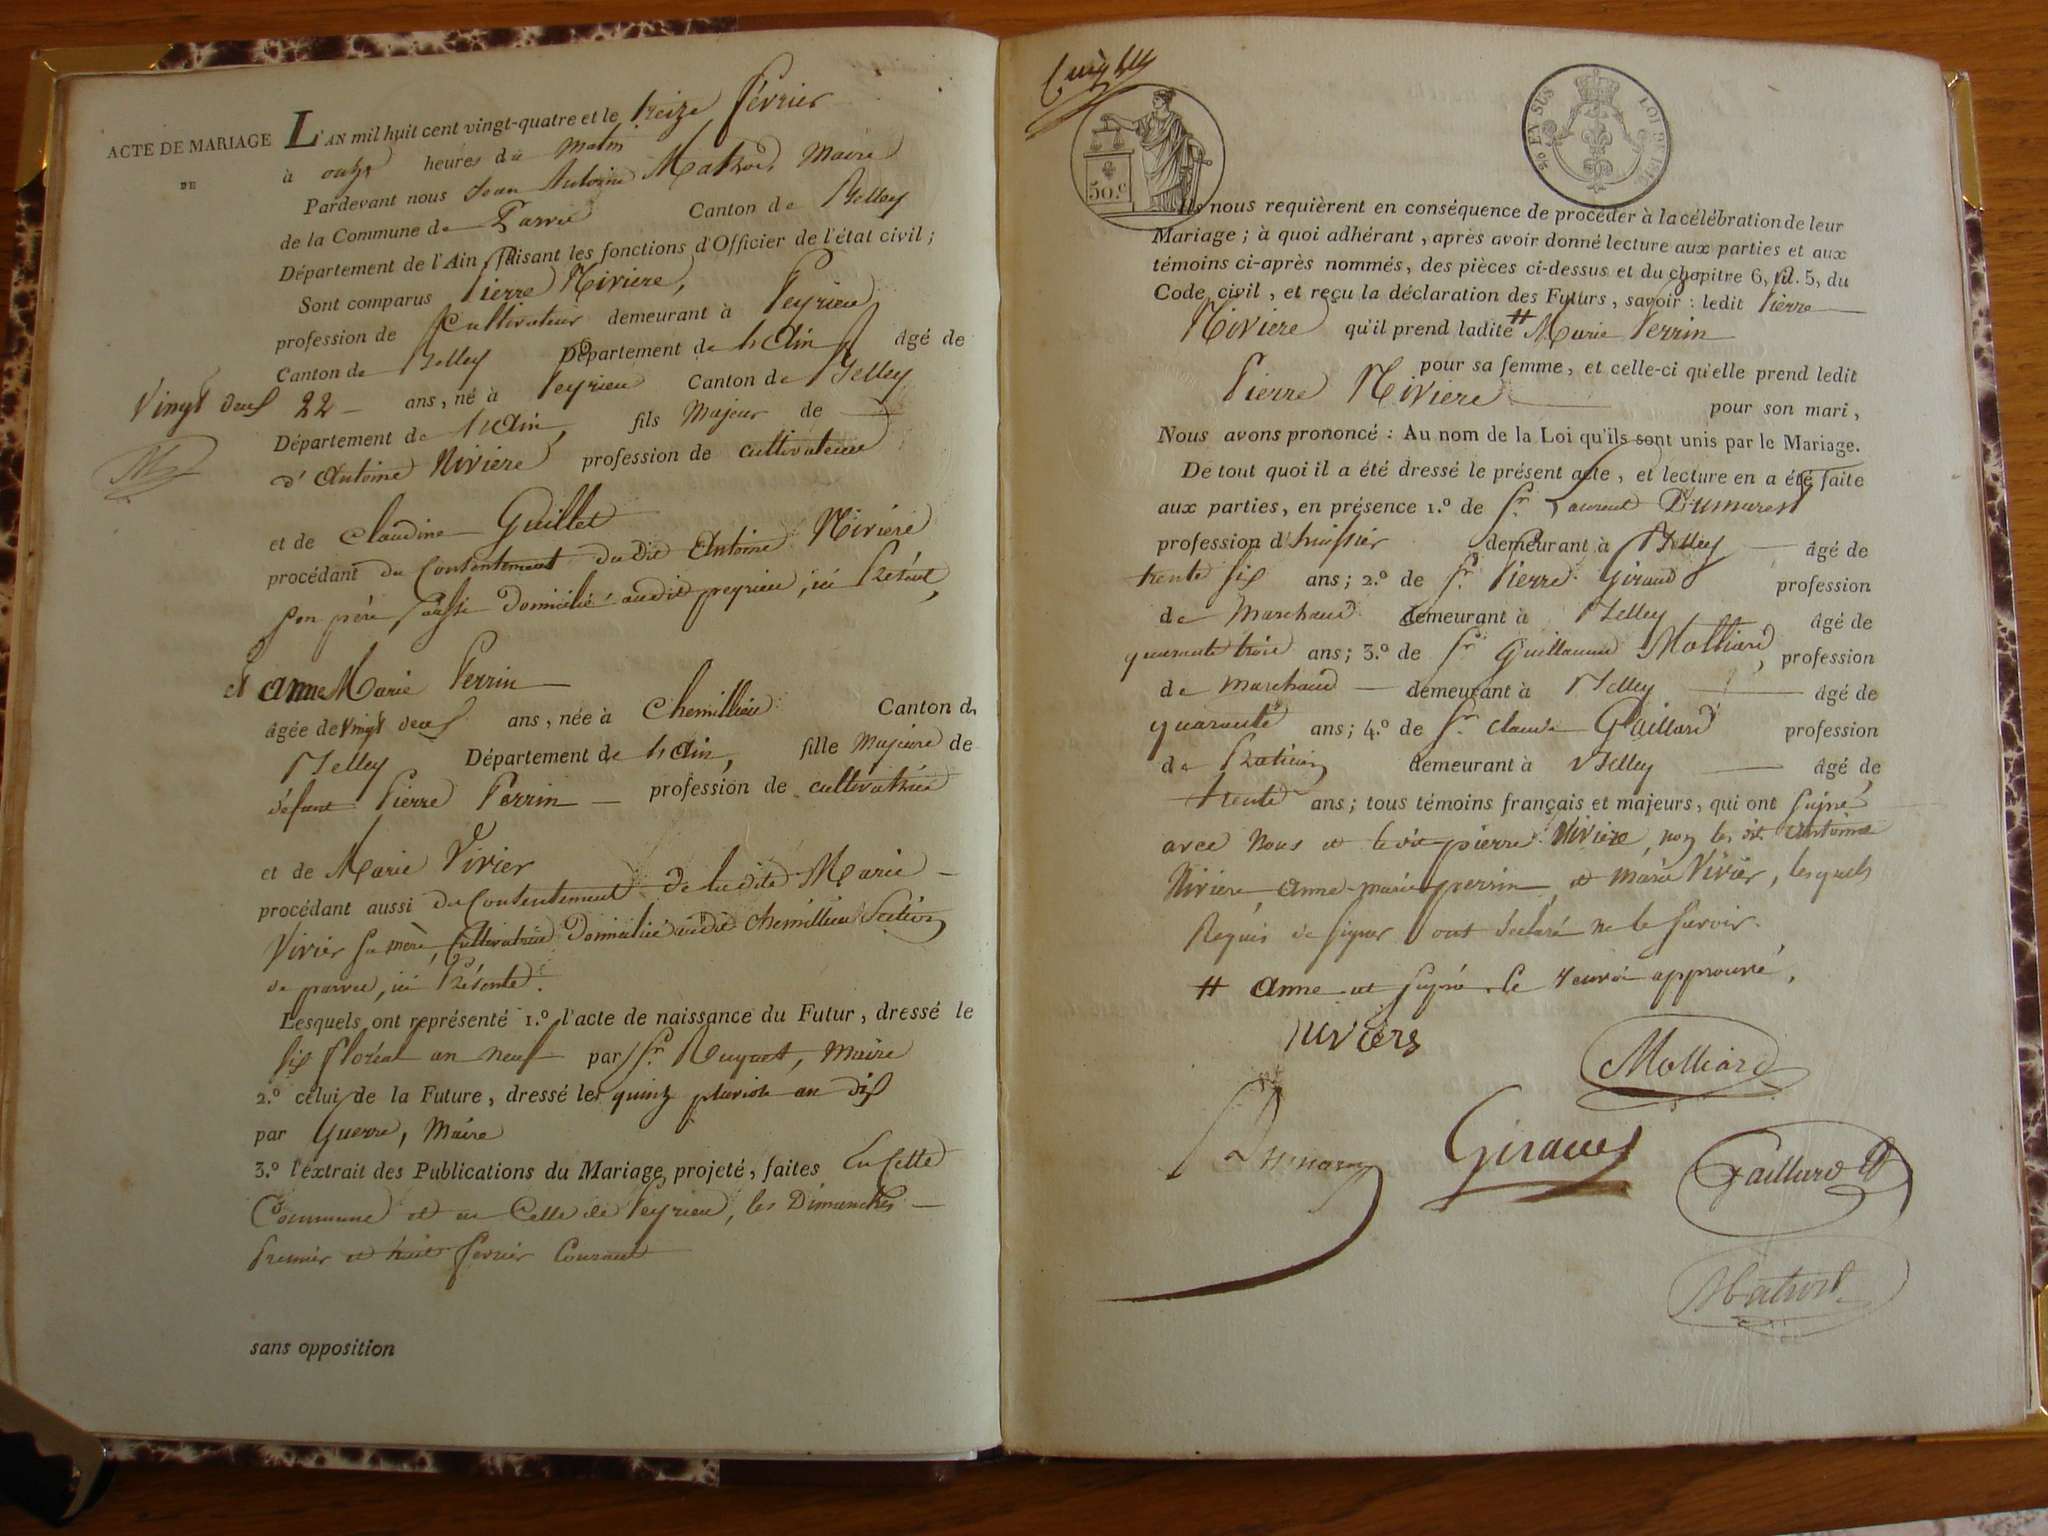 ACTE DE MARIAGE
DE
L'AN mil huit cent vingt-quatre et le treize février
à onze heures du matin
Pardevant nous Jean Antoine Maire
de la Commune de Parves Canton de Belley
Département de l'Ain faisant les fonctions d'Officier de l'état civil;
Sont comparus Pierre Riviere,
profession de Cultivateur demeurant à Peyrieu
Canton de Belley Département de l'Ain âgé de
Vingt deux 22 - ans, né à Peyrieu Canton de Belley
Département de l'Ain, fils Majeur de
d'Antoine Riviere profession de cultivateur
et de Claudine Guillet
procédant du Consentement du dit Antoine Riviere
son père aussi Domicilié audit peyrieu, ici Présent,
et anne Marie Perrin
âgée de vingt deux ans, née à Chemillieu Canton de
Belley Département de l'Ain, fille Majeure de
défunt Pierre Perrin profession de cultivatrice
et de Marie Vivier
procédant aussi du Consentement de ladite Marie
Vivier sa mère, Cultivatrice Domicilié audit chemillieu Section
de parves, ici Présente.
Lesquels ont représenté 1.º l'acte de naissance du Futur, dressé le
six floréal an neuf par Sr. Maire
2.º celui de la Future, dressé le quinze pluviose an dix
par Guerre, Maire
3.º l'extrait des Publications du Mariage projeté, faites En cette
Commune et en Celle de Peyrieu, les Dimanches
Premier et huit fevrier Courant
sans opposition
50.c
20 EN SUS LOI DE 1816
Ils nous requièrent en conséquence de procéder à la célébration de leur
Mariage; à quoi adhérant, après avoir donné lecture aux parties et aux
témoins ci-après nommés, des pièces ci-dessus et du chapitre 6, tit. 5, du
Code civil, et reçu la déclaration des Futurs, savoir: ledit Pierre
Riviere qu'il prend ladite # Marie Perrin
pour sa femme, et celle-ci qu'elle prend ledit
Pierre Riviere pour son mari,
Nous avons prononcé: Au nom de la Loi qu'ils sont unis par le Mariage.
De tout quoi il a été dressé le présent acte, et lecture en a été faite
aux parties, en présence 1.º de Sr. Laurent Dumarest
profession d'huissier demeurant à Belley âgé de
trente six ans; 2.º de Sr. Pierre Giraud profession
de Marchand demeurant à Belley âgé de
quarante trois ans; 3.º de Sr. Guillaume Molliard, profession
de Marchand demeurant à Belley âgé de
quarante ans; 4.º de Sr. Claude Gaillard profession
de Praticien demeurant à Belley âgé de
trente ans; tous témoins français et majeurs, qui ont signé
avec Nous et ledit pierre Riviere, non les dit antoine
Riviere, anne-marie perrin, et marie Vivier, lesquels
Requis de signer ont declaré ne le savoir.
# anne et signé. le renvoi approuvé,
Molliard
Giraud
Gaillard